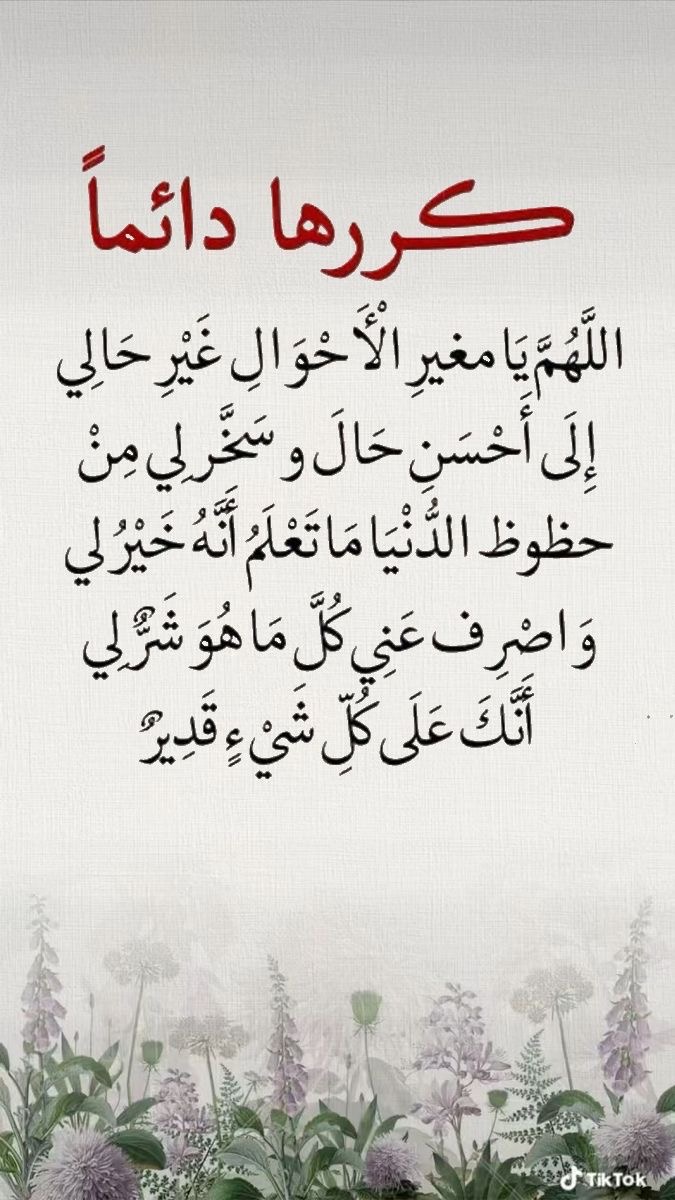 كررها دائماً
اللَّهُمَّ يَا مغيرِ الْأَحْوَالِ غَيْرِ حَالِي
إِلَى أَحْسَنِ حَالَ و سَخَّر لِي مِنْ
حظوظ الدُّنْيَا مَا تَعْلَمُ أَنَّهُ خَيْرُ لي
وَاصْرِف عَنِي كُلَّ مَا هُوَ شَرٌّ لِي
أَنَّكَ عَلَى كُلِّ شَيْءٍ قَدِيرٌ
TikTok